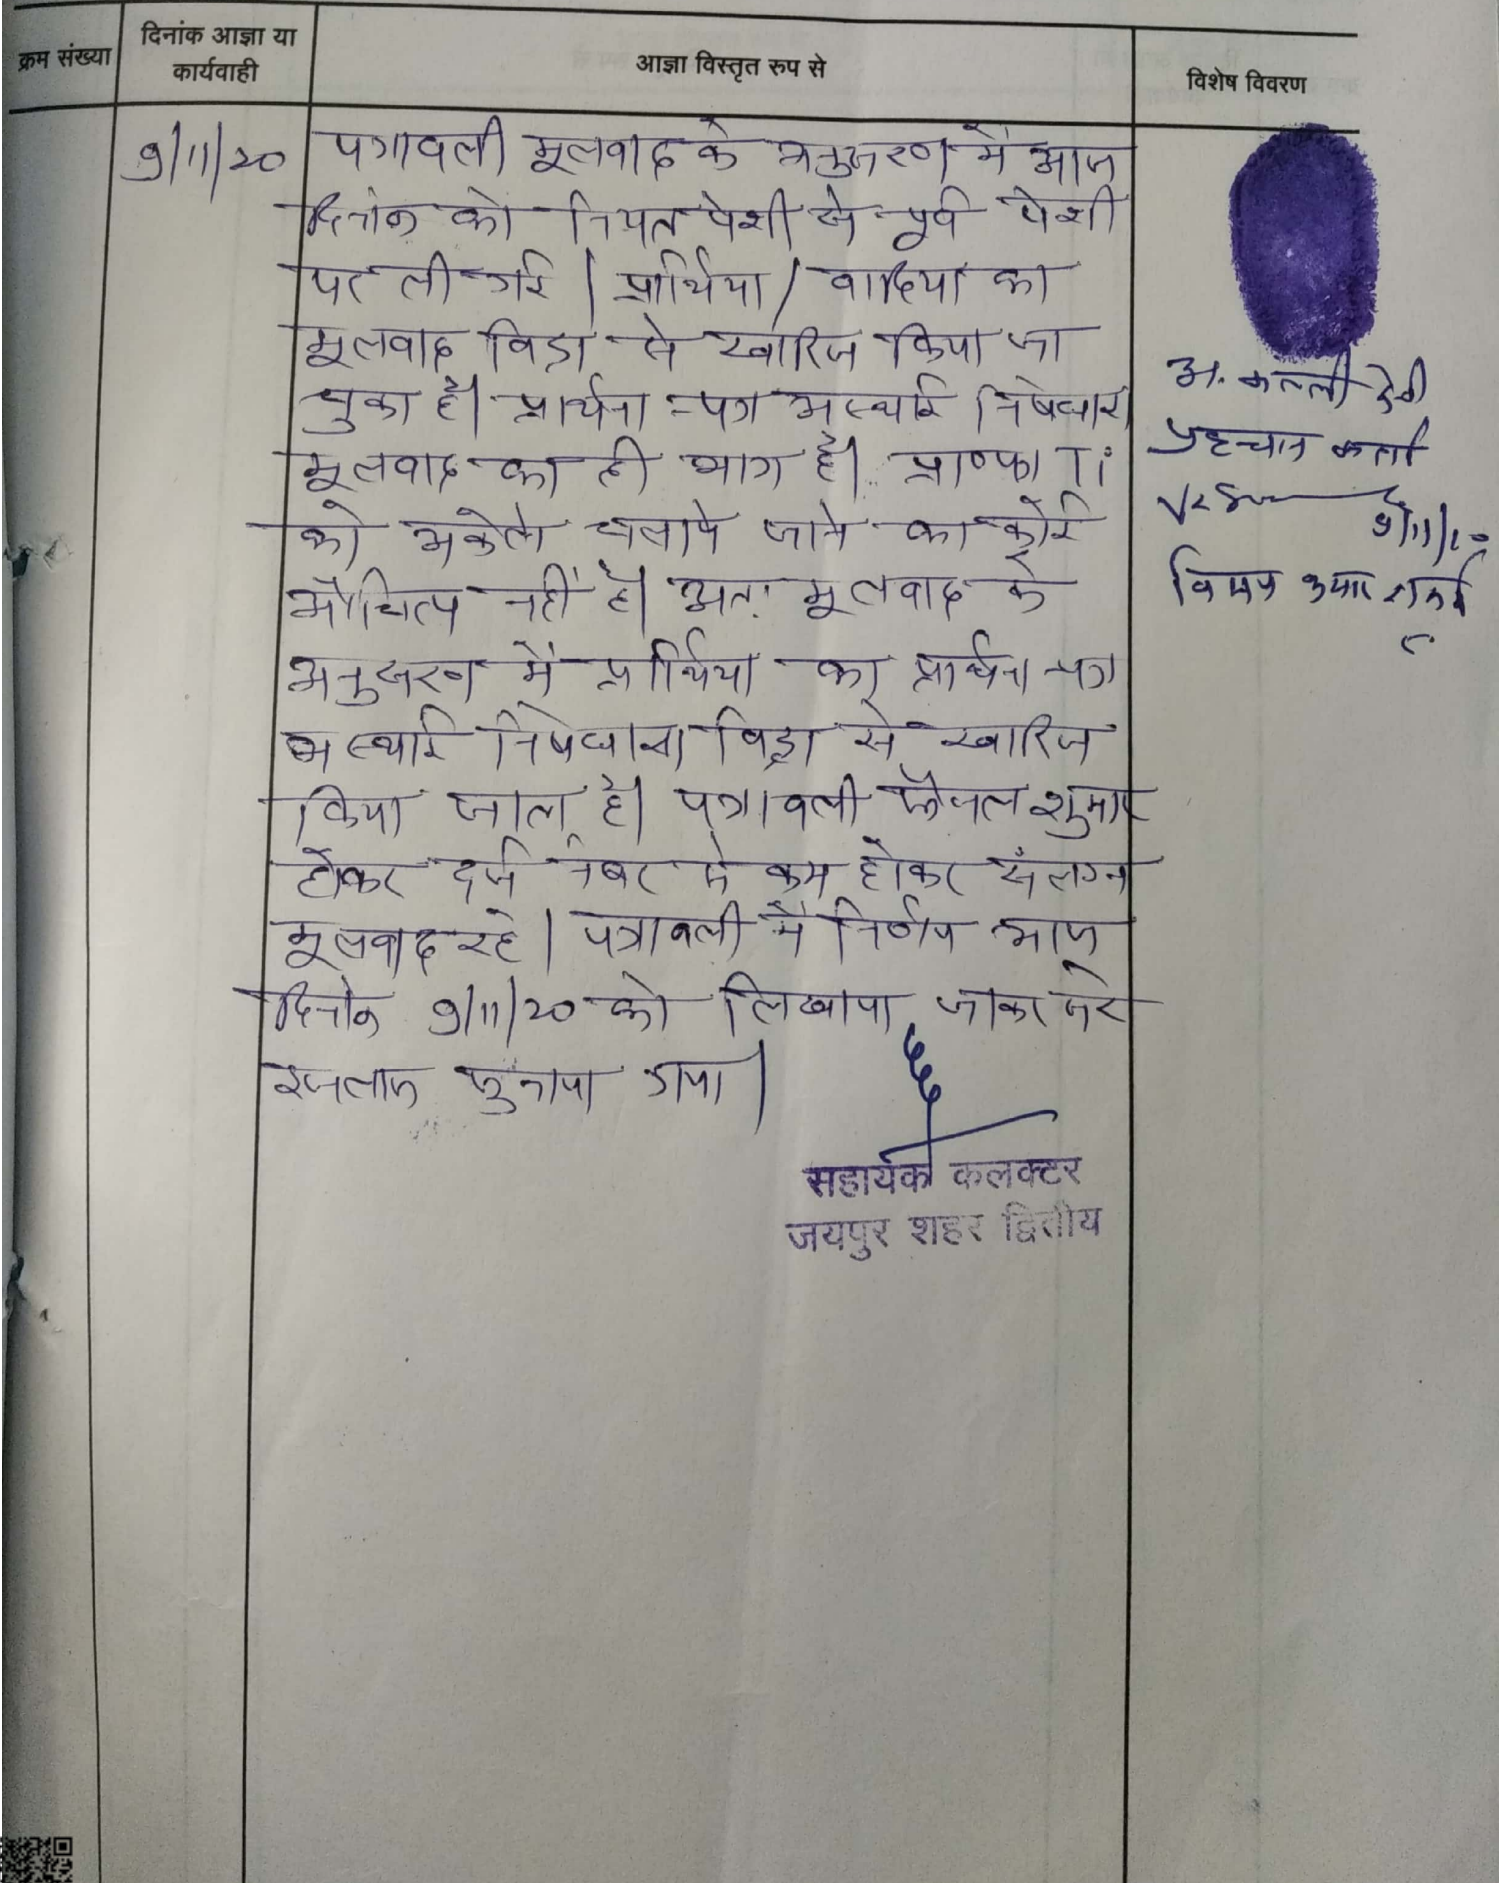 क्रम संख्या
दिनांक आज्ञा या
कार्यवाही
आज्ञा विस्तृत रुप से
विशेष विवरण
9/11/20
पत्रावली मूलवाद के अनुसरण में आज
दिनांक को नियत पेशी से पूर्व पेशी
पर ली गई। प्रार्थिया/वादिया का
मूलवाद विड्रा से खारिज किया जा
चुका है। प्रार्थना-पत्र अस्थाई निषेधाज्ञा
मूलवाद का ही भाग है। प्रा०प० Ti
को अकेले चलाये जाने का कोई
औचित्य नहीं है। अतः मूलवाद के
अनुसरण में प्रार्थिया का प्रार्थना-पत्र
अस्थाई निषेधाज्ञा विड्रा से खारिज
किया जाता है। पत्रावली फैसल शुमार
होकर दर्ज नंबर से कम होकर संलग्न
मूलवाद रहे। पत्रावली में निर्णय आज
दिनांक 9/11/20 को लिखाया जाकर सरे
इजलास सुनाया गया।
सहायक कलक्टर
जयपुर शहर द्वितीय
अ. देवी
पहचान कर्ता
9/11/20
कुमार शर्मा